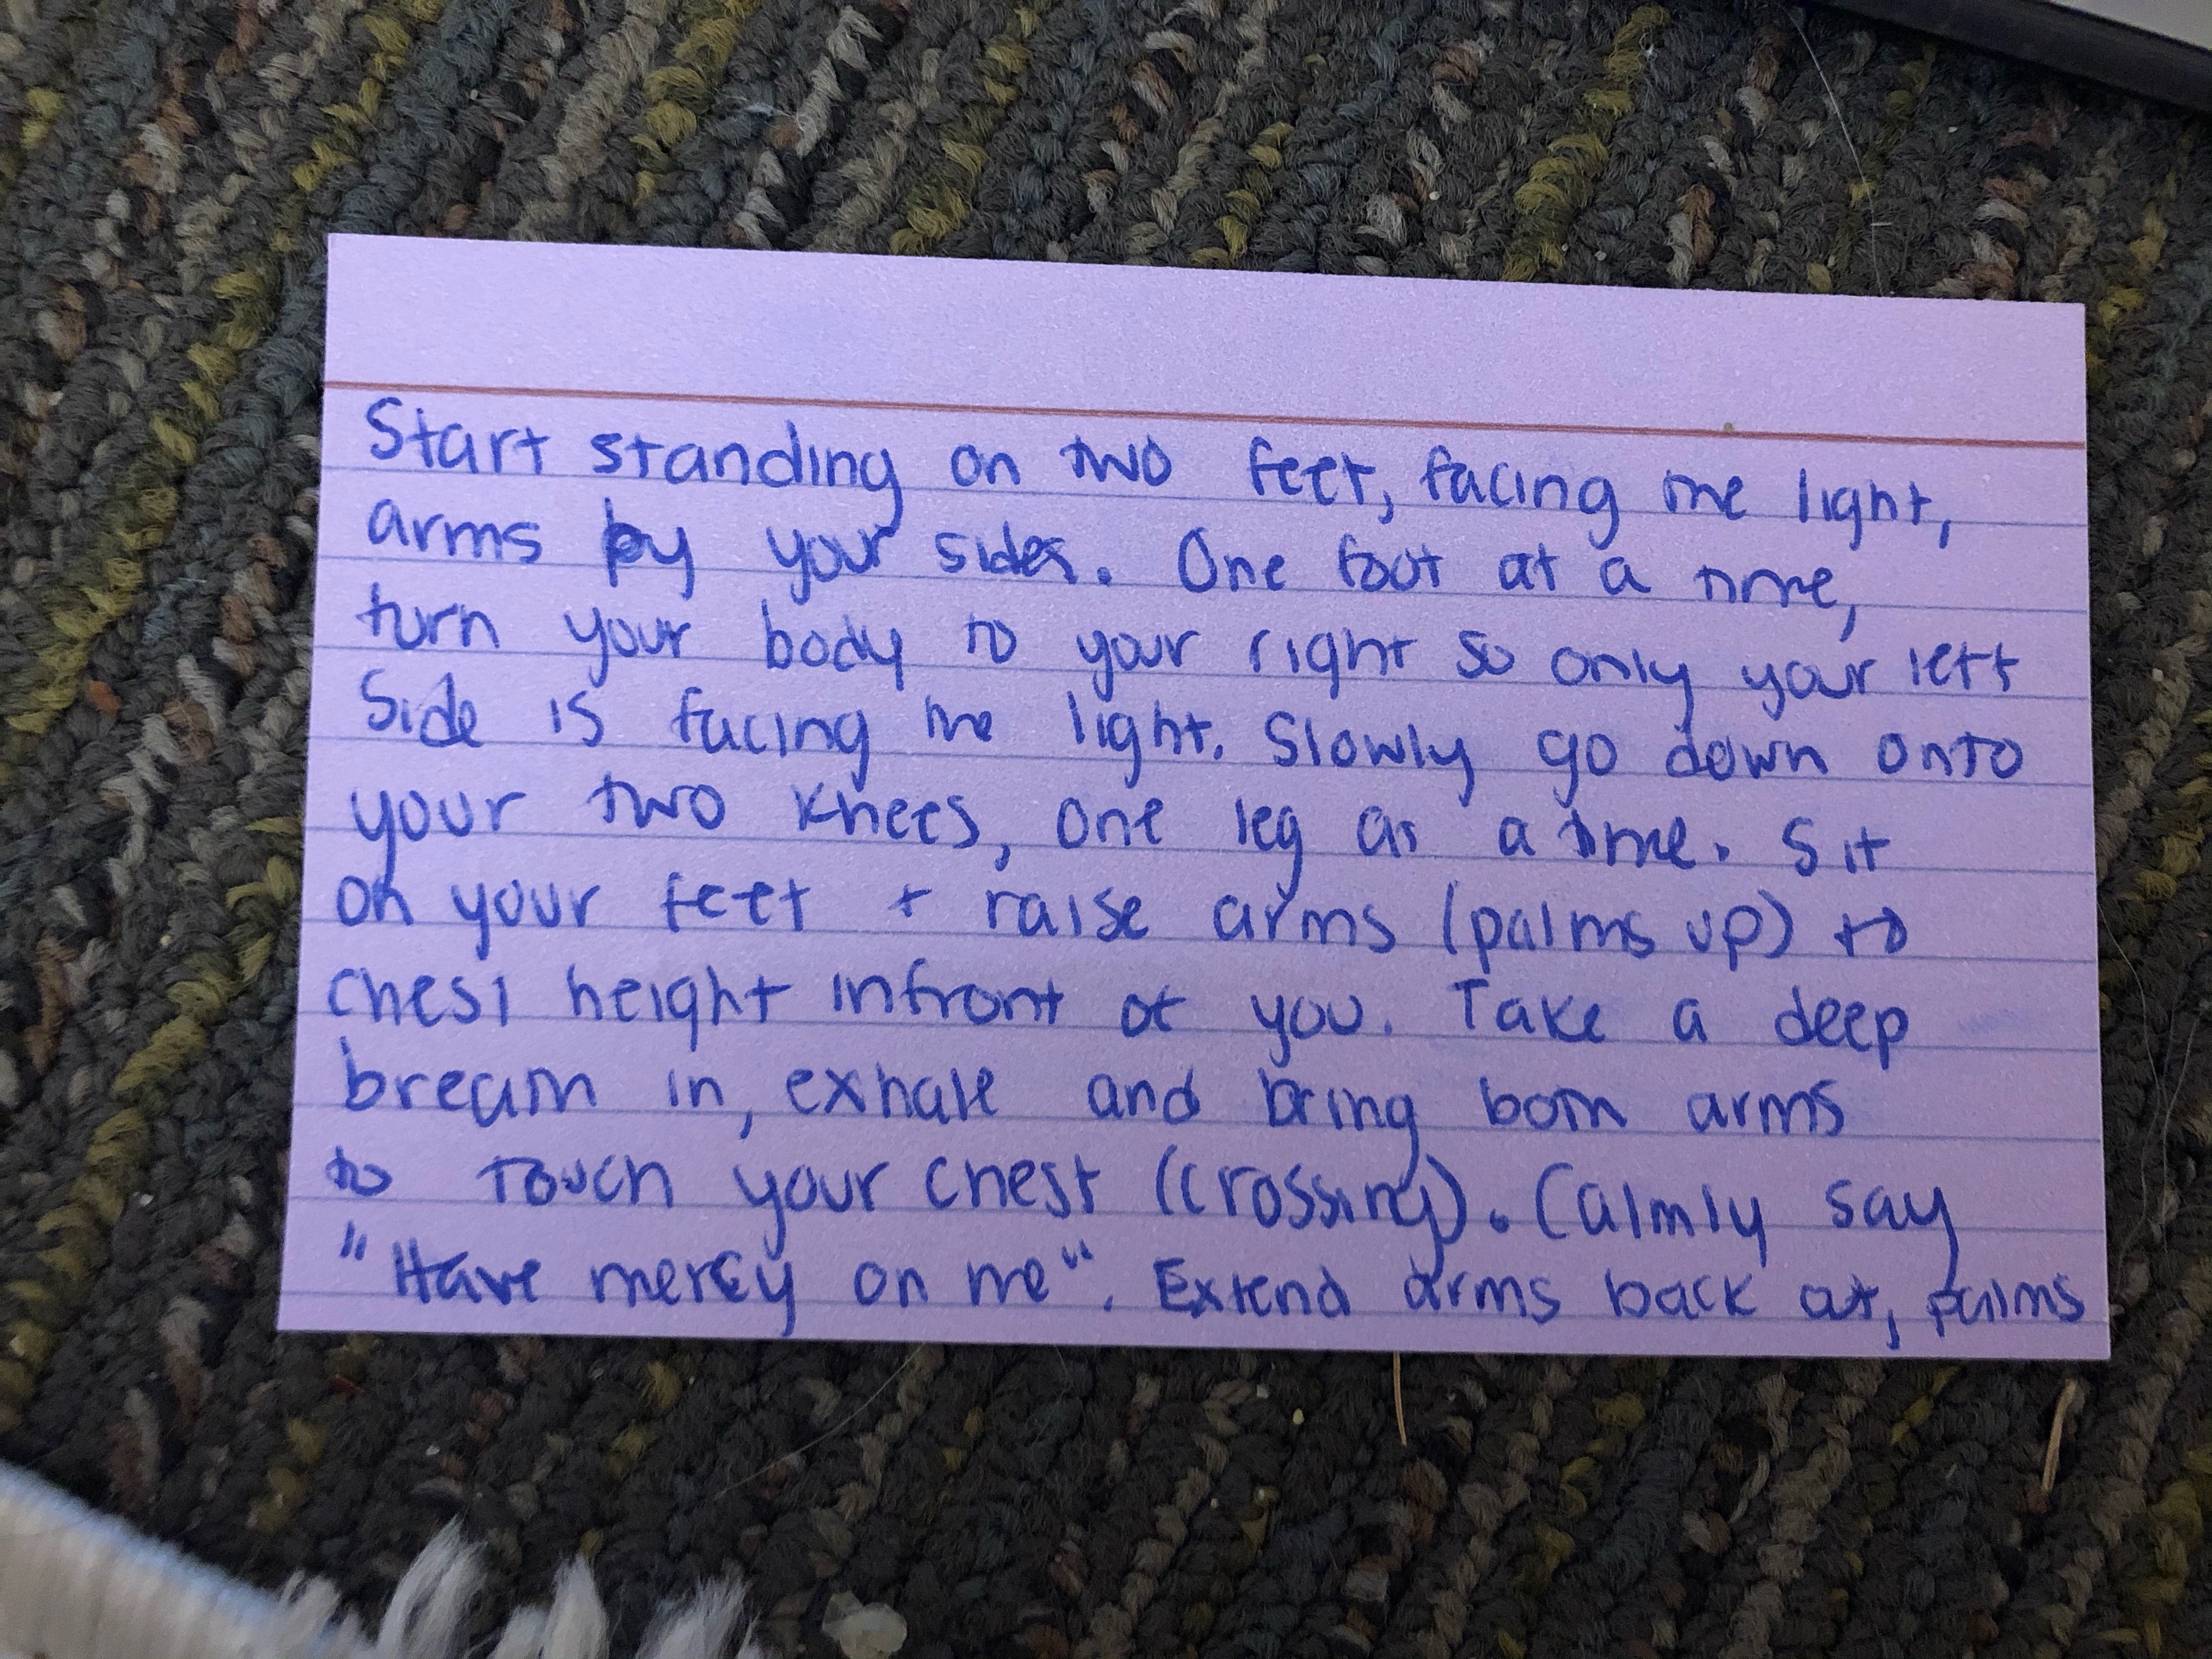 Start standing on two feet, facing the light,
arms by your sides. One foot at a time,
turn your body to your right so only your left
side is facing the light. Slowly go down onto
your two knees, one leg as a time. Sit
on your feet + raise arms (palms up) to
chest height infront of you. Take a deep
breath in, exhale and bring both arms
to touch your chest (crossing). Calmly say
"Have mercy on me". Extend arms back out, palms